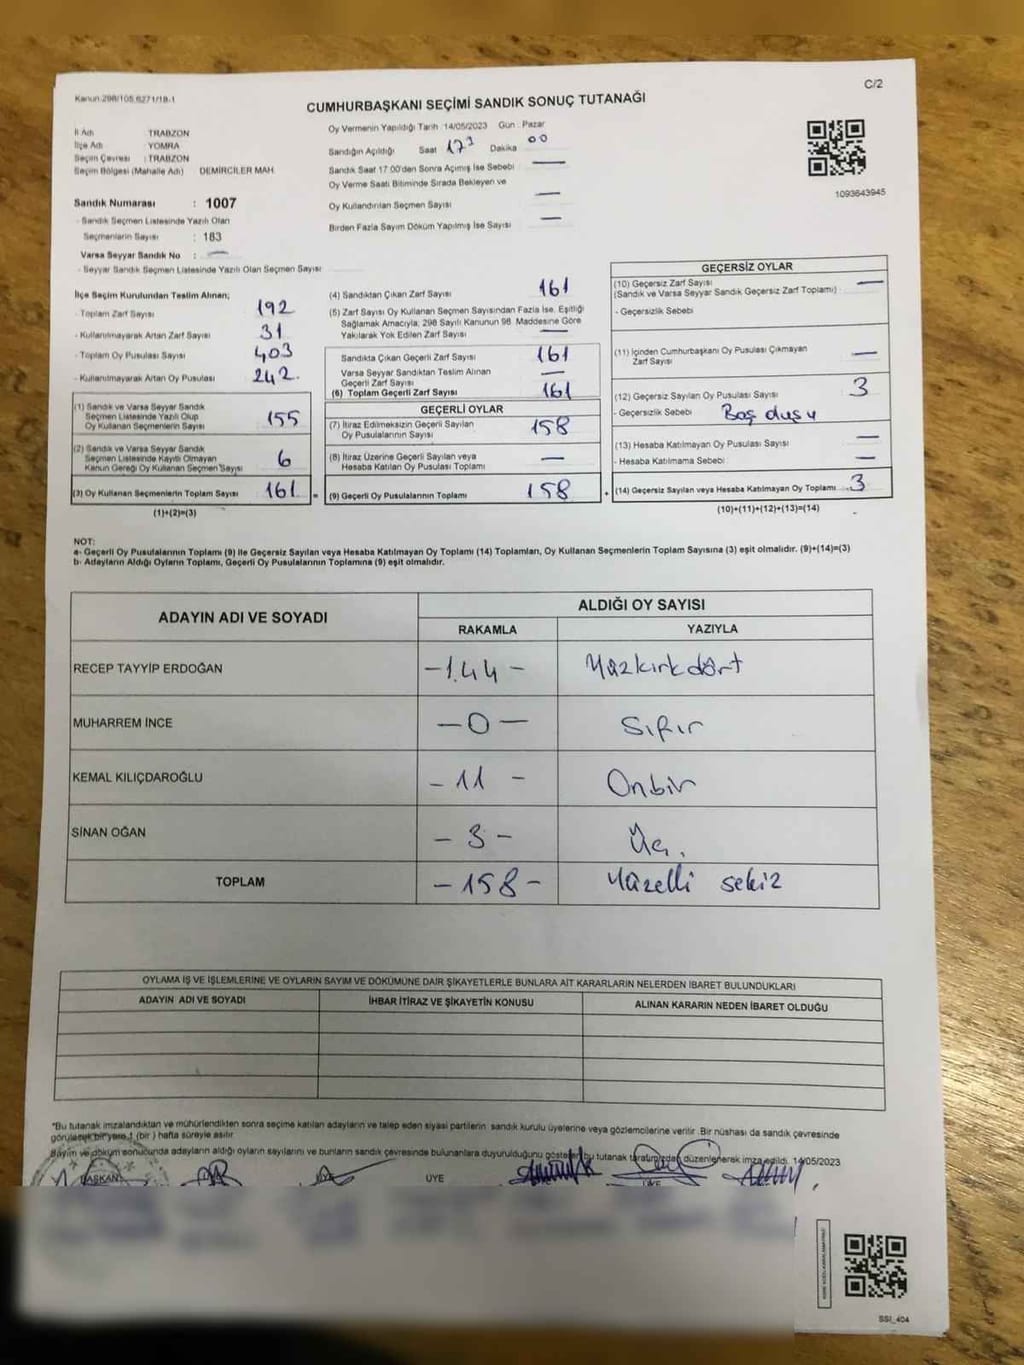 C/2
Kanun 298/105,6271/18-1
CUMHURBAŞKANI SEÇİMİ SANDIK SONUÇ TUTANAĞI
İl Adı : TRABZON
İlçe Adı : YOMRA
Seçim Çevresi : TRABZON
Seçim Bölgesi (Mahalle Adı) DEMİRCİLER MAH.
Sandık Numarası : 1007
- Sandık Seçmen Listesinde Yazılı Olan
Seçmenlerin Sayısı : 183
Varsa Seyyar Sandık No : —
- Seyyar Sandık Seçmen Listesinde Yazılı Olan Seçmen Sayısı
Oy Vermenin Yapıldığı Tarih 14/05/2023 Gün : Pazar
Sandığın Açıldığı Saat Dakika 00
Sandık Saat 17:00'den Sonra Açımış İse Sebebi —
Oy Verme Saati Bitiminde Sırada Bekleyen ve
Oy Kullandırılan Seçmen Sayısı —
Birden Fazla Sayım Döküm Yapılmış İse Sayısı —
1093643945
İlçe Seçim Kurulundan Teslim Alınan;
- Toplam Zarf Sayısı 192
- Kullanılmayarak Artan Zarf Sayısı 31
- Toplam Oy Pusulası Sayısı 403
- Kullanılmayarak Artan Oy Pusulası 242
(1) Sandık ve Varsa Seyyar Sandık
Seçmen Listesinde Yazılı Olup
Oy Kullanan Seçmenlerin Sayısı 155
(2) Sandık ve Varsa Seyyar Sandık
Seçmen Listesinde Kayıtlı Olmayan
Kanun Gereği Oy Kullanan Seçmen Sayısı 6
(3) Oy Kullanan Seçmenlerin Toplam Sayısı 161 =
(1)+(2)=(3)
(4) Sandıktan Çıkan Zarf Sayısı 161
(5) Zarf Sayısı Oy Kullanan Seçmen Sayısından Fazla İse, Eşitliği
Sağlamak Amacıyla; 298 Sayılı Kanunun 98. Maddesine Göre
Yakılarak Yok Edilen Zarf Sayısı —
Sandıkta Çıkan Geçerli Zarf Sayısı 161
Varsa Seyyar Sandıktan Teslim Alınan
Geçerli Zarf Sayısı —
(6) Toplam Geçerli Zarf Sayısı 161
GEÇERLİ OYLAR
(7) İtiraz Edilmeksizin Geçerli Sayılan
Oy Pusulalarının Sayısı 158
(8) İtiraz Üzerine Geçerli Sayılan veya
Hesaba Katılan Oy Pusulası Toplamı —
(9) Geçerli Oy Pusulalarının Toplamı 158 +
GEÇERSİZ OYLAR
(10) Geçersiz Zarf Sayısı —
(Sandık ve Varsa Seyyar Sandık Geçersiz Zarf Toplamı)
- Geçersizlik Sebebi
(11) İçinden Cumhurbaşkanı Oy Pusulası Çıkmayan
Zarf Sayısı —
(12) Geçersiz Sayılan Oy Pusulası Sayısı 3
- Geçersizlik Sebebi
(13) Hesaba Katılmayan Oy Pusulası Sayısı —
- Hesaba Katılmama Sebebi —
(14) Geçersiz Sayılan veya Hesaba Katılmayan Oy Toplamı 3
(10)+(11)+(12)+(13)=(14)
NOT:
a- Geçerli Oy Pusulalarının Toplamı (9) ile Geçersiz Sayılan veya Hesaba Katılmayan Oy Toplamı (14) Toplamları, Oy Kullanan Seçmenlerin Toplam Sayısına (3) eşit olmalıdır. (9)+(14)=(3)
b- Adayların Aldığı Oyların Toplamı, Geçerli Oy Pusulalarının Toplamına (9) eşit olmalıdır.
ADAYIN ADI VE SOYADI ALDIĞI OY SAYISI
RAKAMLA YAZIYLA
RECEP TAYYİP ERDOĞAN -144- Yüzkırkdört
MUHARREM İNCE -0- Sıfır
KEMAL KILIÇDAROĞLU -11- Onbir
SİNAN OĞAN -3- Üç.
TOPLAM -158- Yüzelli sekiz
OYLAMA İŞ VE İŞLEMLERİNE VE OYLARIN SAYIM VE DÖKÜMÜNE DAİR ŞİKAYETLERLE BUNLARA AİT KARARLARIN NELERDEN İBARET BULUNDUKLARI
ADAYIN ADI VE SOYADI İHBAR İTİRAZ VE ŞİKAYETİN KONUSU ALINAN KARARIN NEDEN İBARET OLDUĞU
*Bu tutanak imzalandıktan ve mühürlendikten sonra seçime katılan adayların ve talep eden siyasi partilerin sandık kurulu üyelerine veya gözlemcilerine verilir. Bir nüshası da sandık çevresinde
görülecek bir yere 1 (bir) hafta süreyle asılır.
Sayım ve döküm sonucunda adayların aldığı oyların sayılarını ve bunların sandık çevresinde bulunanlara duyurulduğunu gösterir bu tutanak tarafımızdan düzenlenerek imza edildi. 14/05/2023
BAŞKAN ÜYE ÜYE ÜYE
SSI_404